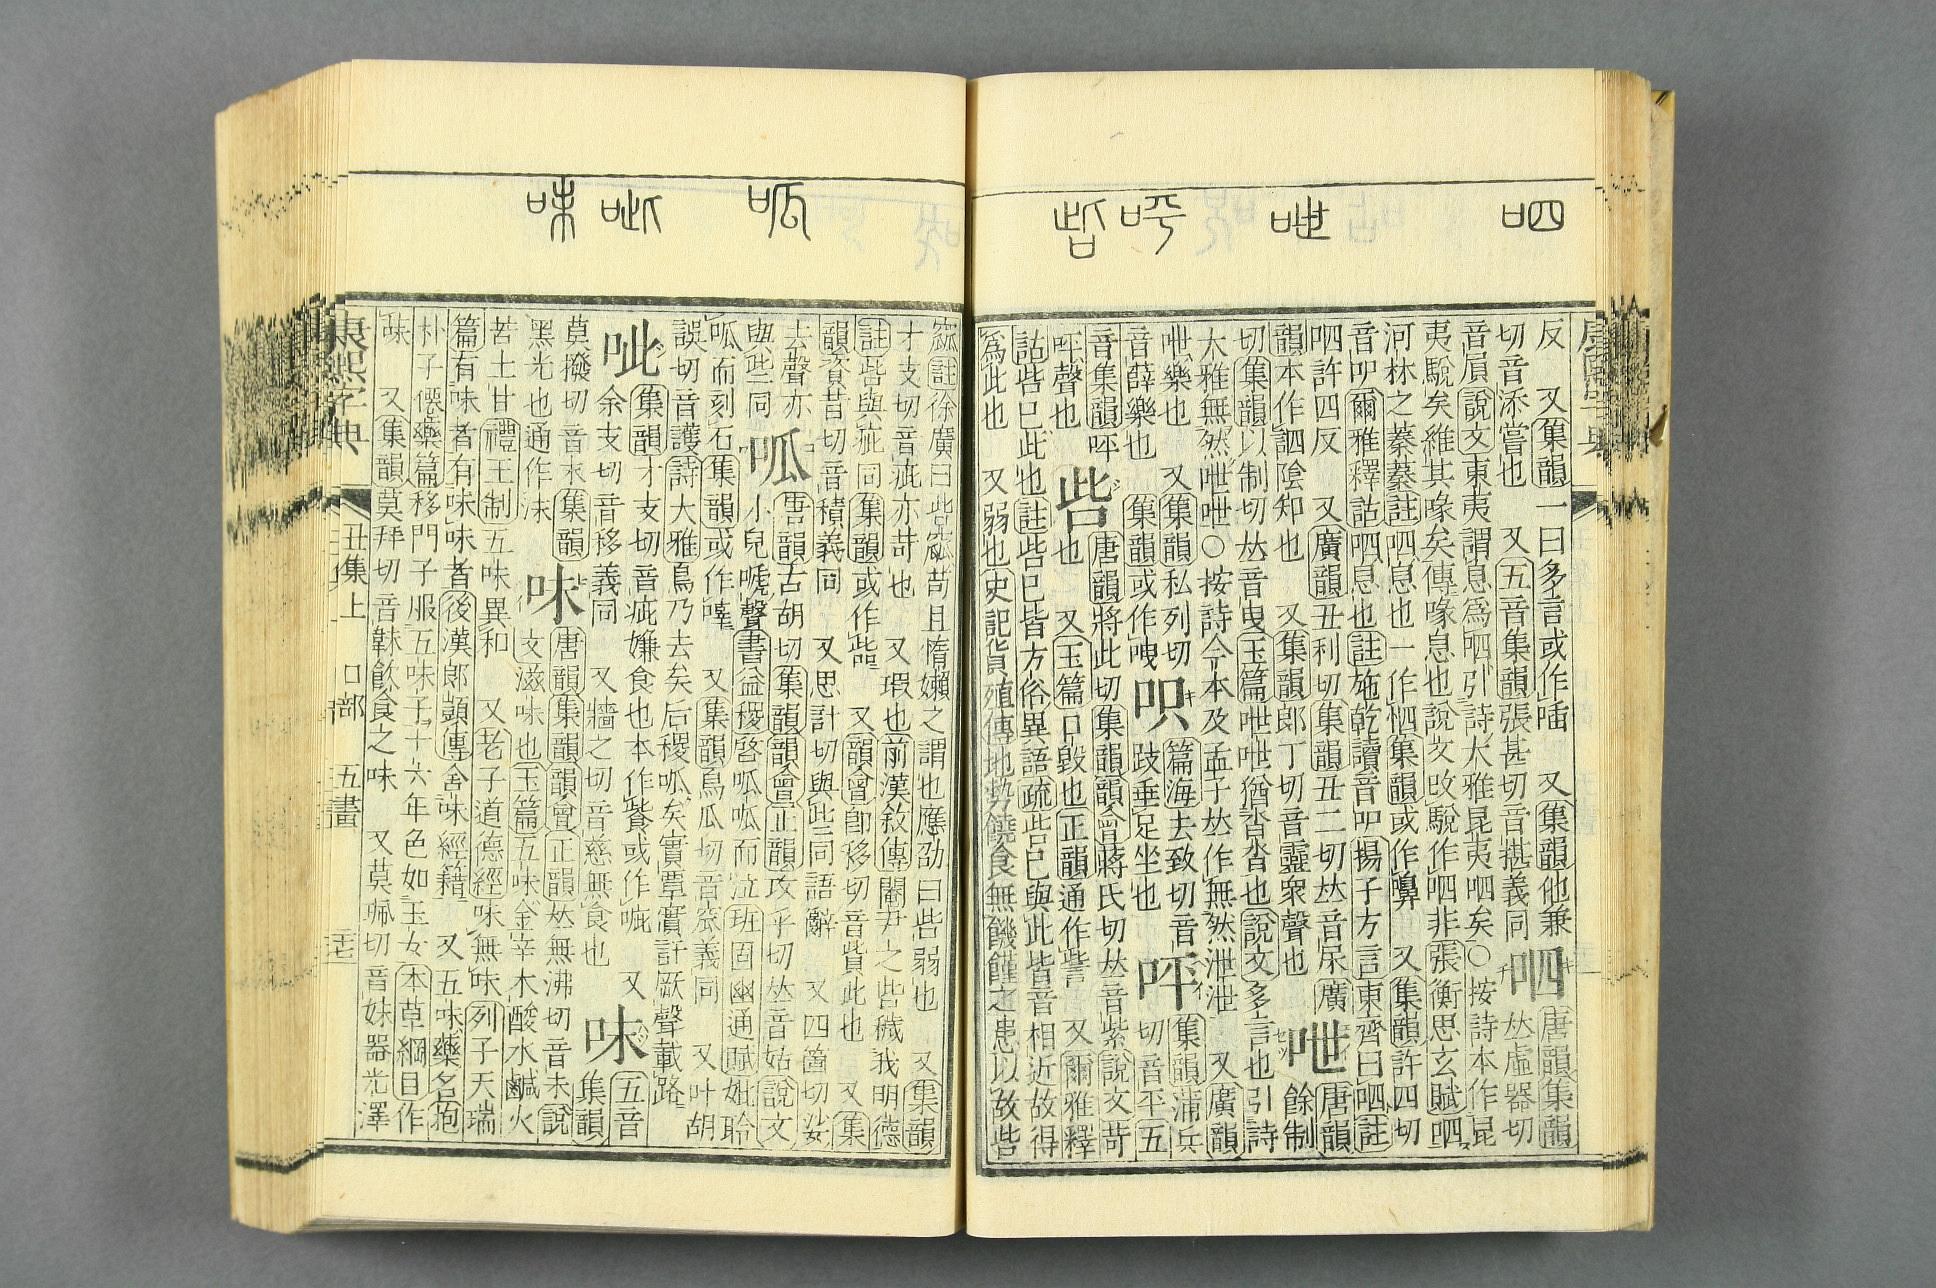 呬　呭　呯　呰
反　又集韻一曰多言或作㖭　又集韻他兼
切音添嘗也　又五音集韻張甚切音揕義同
呬
唐韻集韻
𠀤虛器切
音屓說文東夷謂息爲呬引詩大雅昆夷呬矣○按詩本作昆
夷駾矣維其喙矣傳喙息也說文改駾作呬非張衡思玄賦呬
河林之蓁蓁註呬息也一作恓集韻或作㗨　又集韻許四切
音叩爾雅釋詁呬息也註施乾讀音叩揚子方言東齊曰呬註
呬許四反　又廣韻丑利切集韻丑二切𠀤音尿廣
韻本作䛆陰知也　又集韻郎丁切音靈衆聲也
呭
唐韻
餘制
切集韻以制切𠀤音曳玉篇呭呭猶沓沓也說文多言也引詩
大雅無然呭呭○按詩今本及孟子𠀤作無然泄泄　又廣韻
呭樂也　又集韻私列切
音薛樂也　集韻或作㖂
呮
篇海去致切音
跂垂足坐也
呯
集韻蒲兵
切音平五
音集韻呯
呯聲也
呰
唐韻將此切集韻韻會蔣氏切𠀤音紫說文苛
也　又玉篇口毀也正韻通作訾　又爾雅釋
詁呰已此也註呰已皆方俗異語疏呰已與此皆音相近故得
爲此也　又弱也史記貨殖傳地埶饒食無饑饉之患以故呰
呱　呲　味
窳註徐廣曰呰窳苟且惰嬾之謂也應劭曰呰弱也　又集韻
才支切音疵亦苛也　又瑕也前漢敘傳閹尹之呰穢我明德
註呰與疵同集韻或作㱔　又韻會卽移切音貲此也　又集
韻資昔切音積義同　又思計切與些同語辭　又四箇切娑
去聲亦
與些同
呱
唐韻古胡切集韻韻會正韻攻乎切𠀤音姑說文
小兒嗁聲書益稷啓呱呱而泣班固幽通賦妣聆
呱而刻石集韻或作㖉　又集韻烏瓜切音窊義同　又叶胡
誤切音護詩大雅鳥乃去矣后稷呱矣實覃實訏厥聲載路
呲
集韻才支切音疵嫌食也本作㱔或作㽹　又
余支切音移義同　又牆之切音慈無食也
味
五音
集韻
莫撥切音末
黑光也通作沬
集韻
味
唐韻集韻韻會正韻𠀤無沸切音未說
文滋味也玉篇五味金辛木酸水鹹火
苦土甘禮王制五味異和　又老子道德經味無味列子天瑞
篇有味者有味味者後漢郎顗傳含味經籍　又五味藥名抱
朴子僊藥篇移門子服五味子十六年色如玉女本草綱目作
菋　又集韻莫拜切音韎飮食之味　又莫佩切音妹器光澤
康熙字典　丑集上　口部　五畫